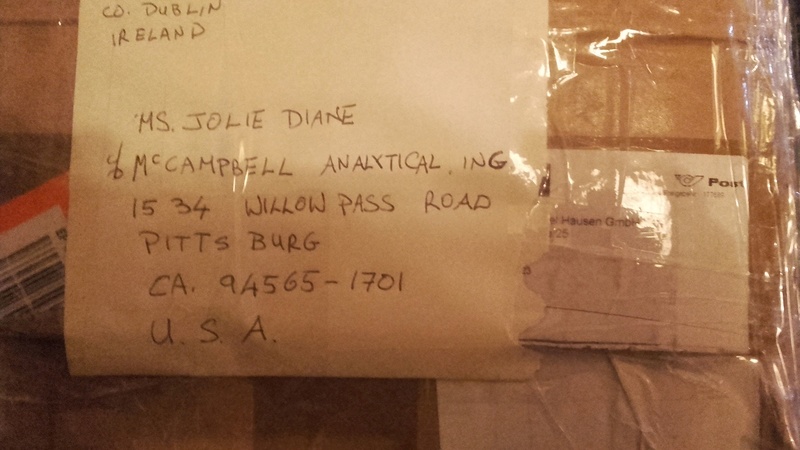 CO. DUBLIN
IRELAND
MS. JOLIE DIANE
℅ MCCAMPBELL ANALYTICAL, ING
1534 WILLOW PASS ROAD
PITTSBURG
CA. 94565-1701
U.S.A.
Post
el Hausen GmbH
25